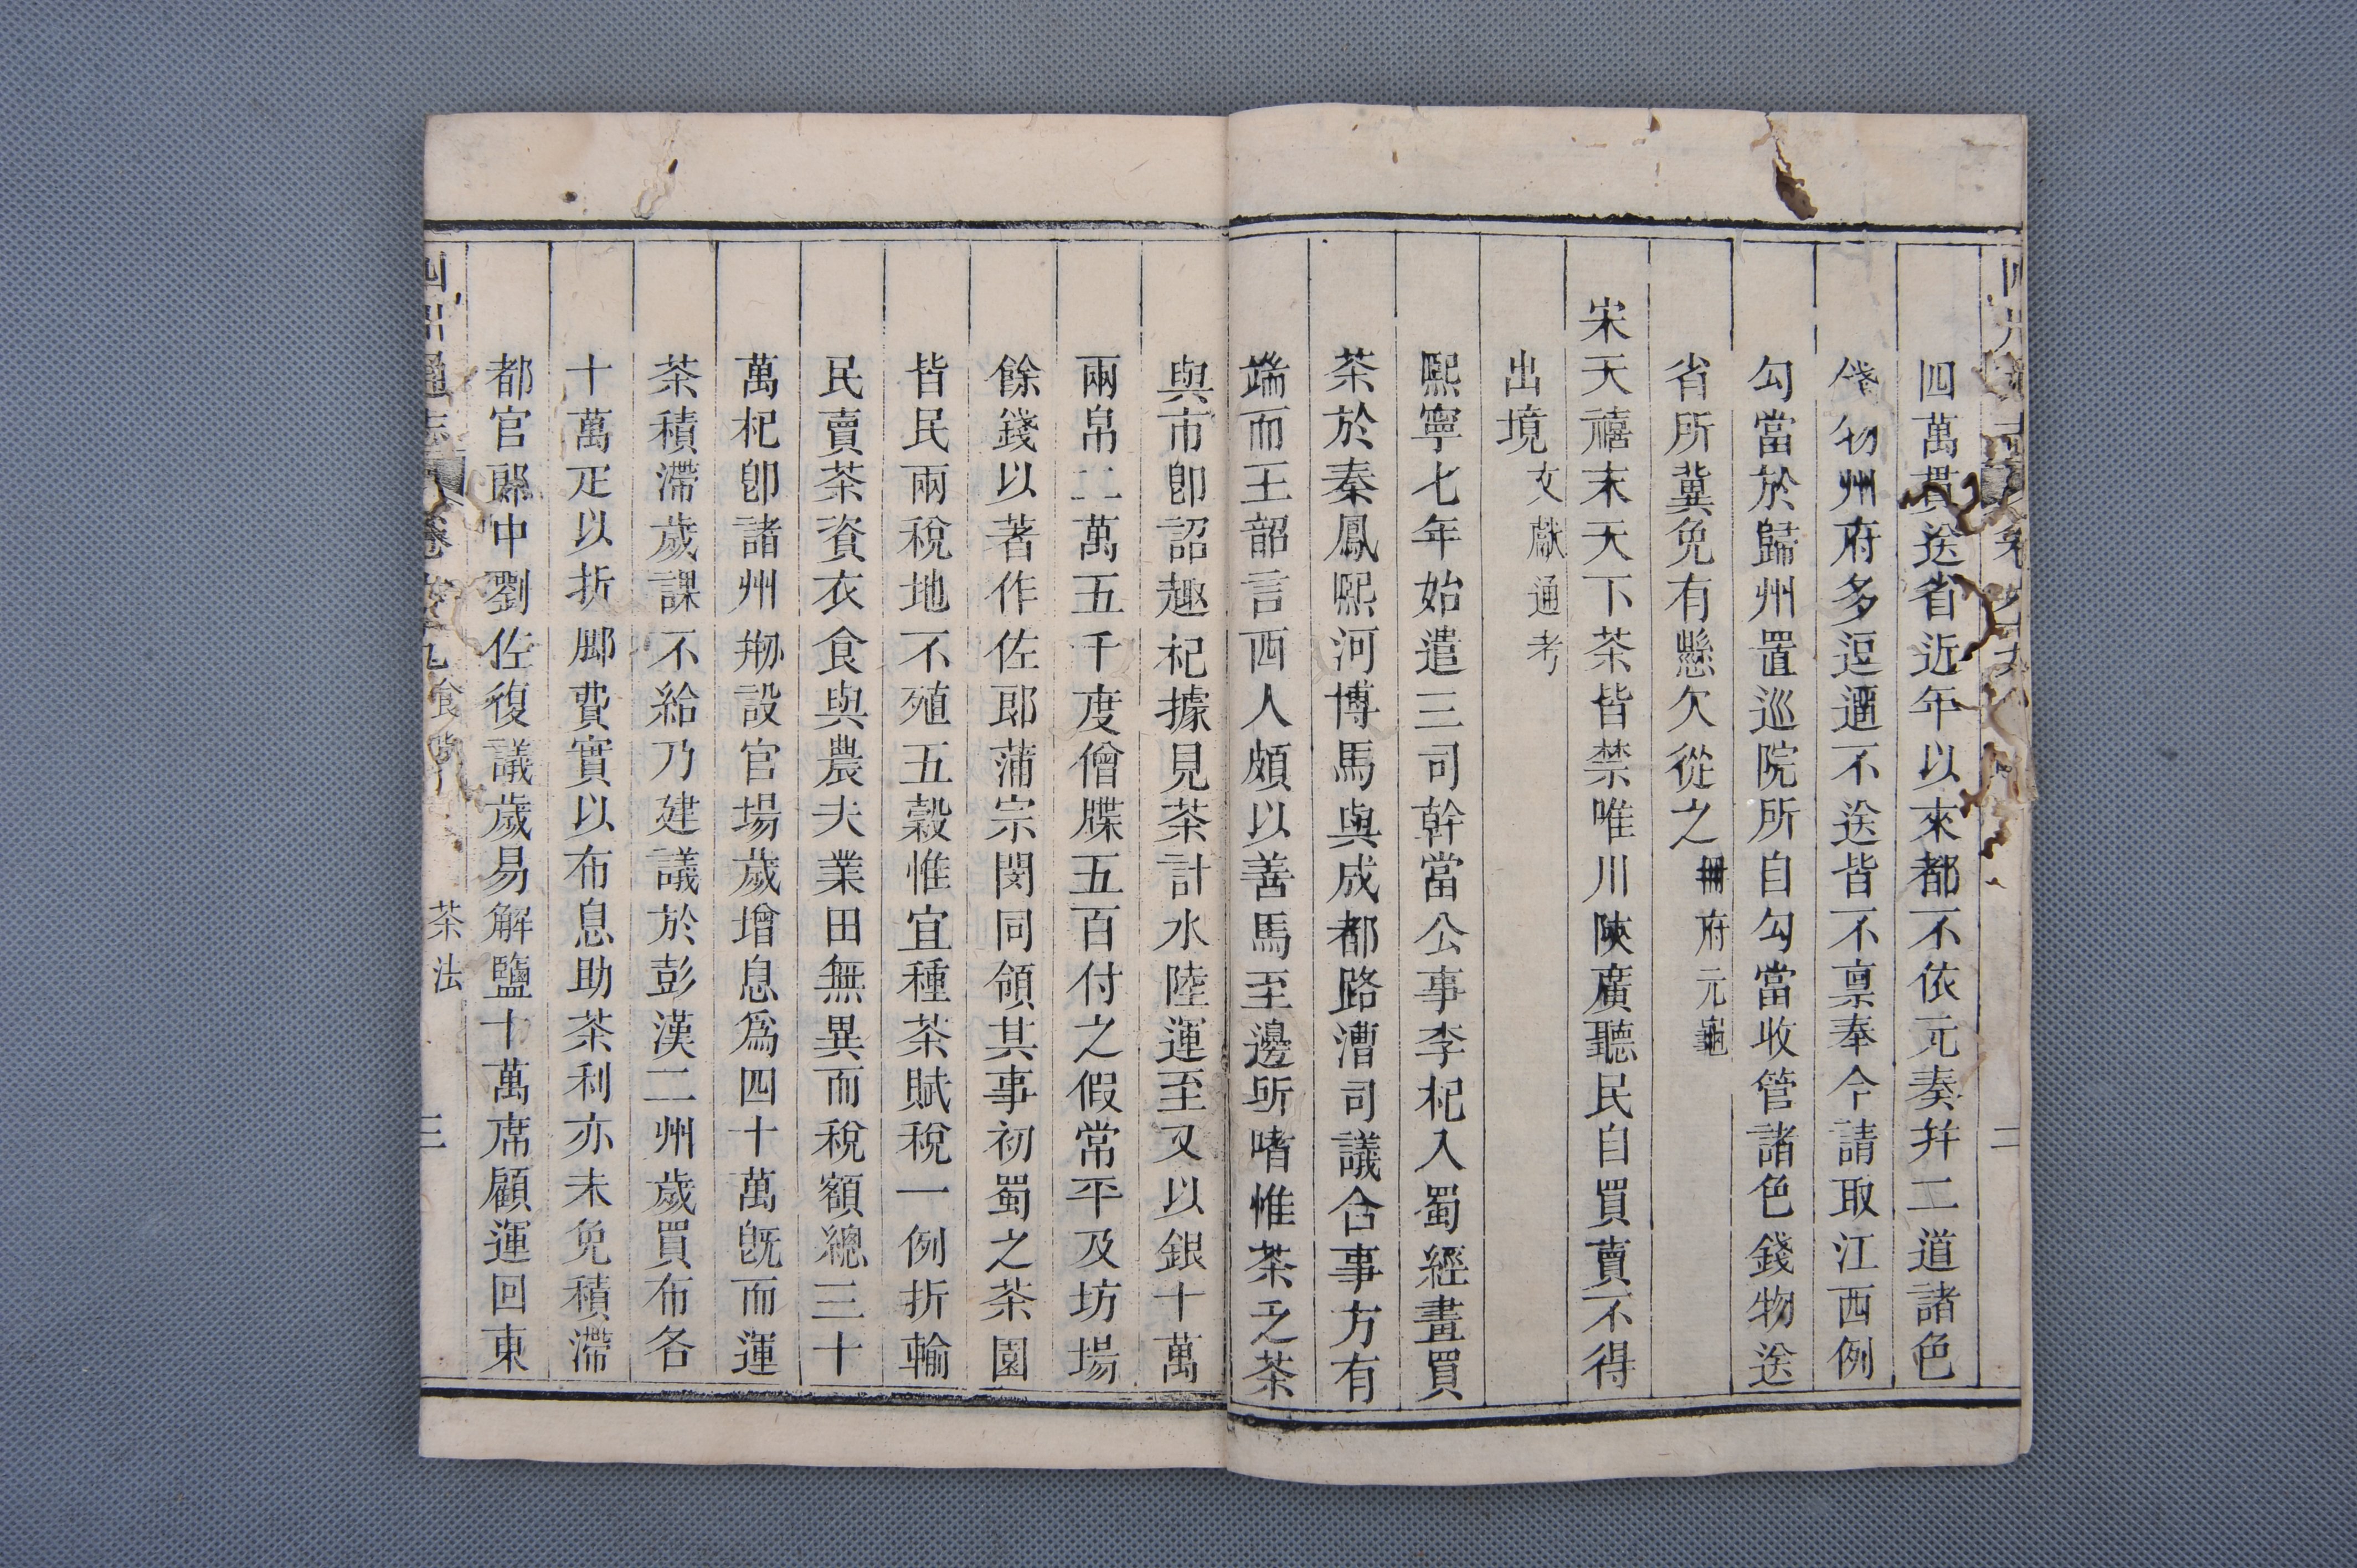 四萬貫送省近年以來都不依元奏幷二道諸色
錢物州府多逗遛不送皆不稟奉今請取江西例
勾當於歸州置巡院所自勾當收管諸色錢物送
省所冀免有懸欠從之冊府元龜
宋天禧末天下茶皆禁唯川陝廣聽民自買賣不得
出境文獻通考
熙寧七年始遣三司幹當公事李杞入蜀經畫買
茶於秦鳳熙河博馬與成都路漕司議合事方有
端而王韶言西人頗以善馬至邊所嗜惟茶乏茶
與市卽詔趣杞據見茶計水陸運至又以銀十萬
兩帛二萬五千度僧牒五百付之假常平及坊場
餘錢以著作佐郎蒲宗閔同領其事初蜀之茶園
皆民兩稅地不殖五穀惟宜種茶賦稅一例折輸
民賣茶資衣食與農夫業田無異而稅額總三十
萬杞卽諸州剏設官場歲增息爲四十萬旣而運
茶積滯歲課不給乃建議於彭漢二州歲買布各
十萬疋以折腳費實以布息助茶利亦未免積滯
都官郎中劉佐復議歲易解鹽十萬席顧運回東
四川通志 卷 食貨 茶法 三